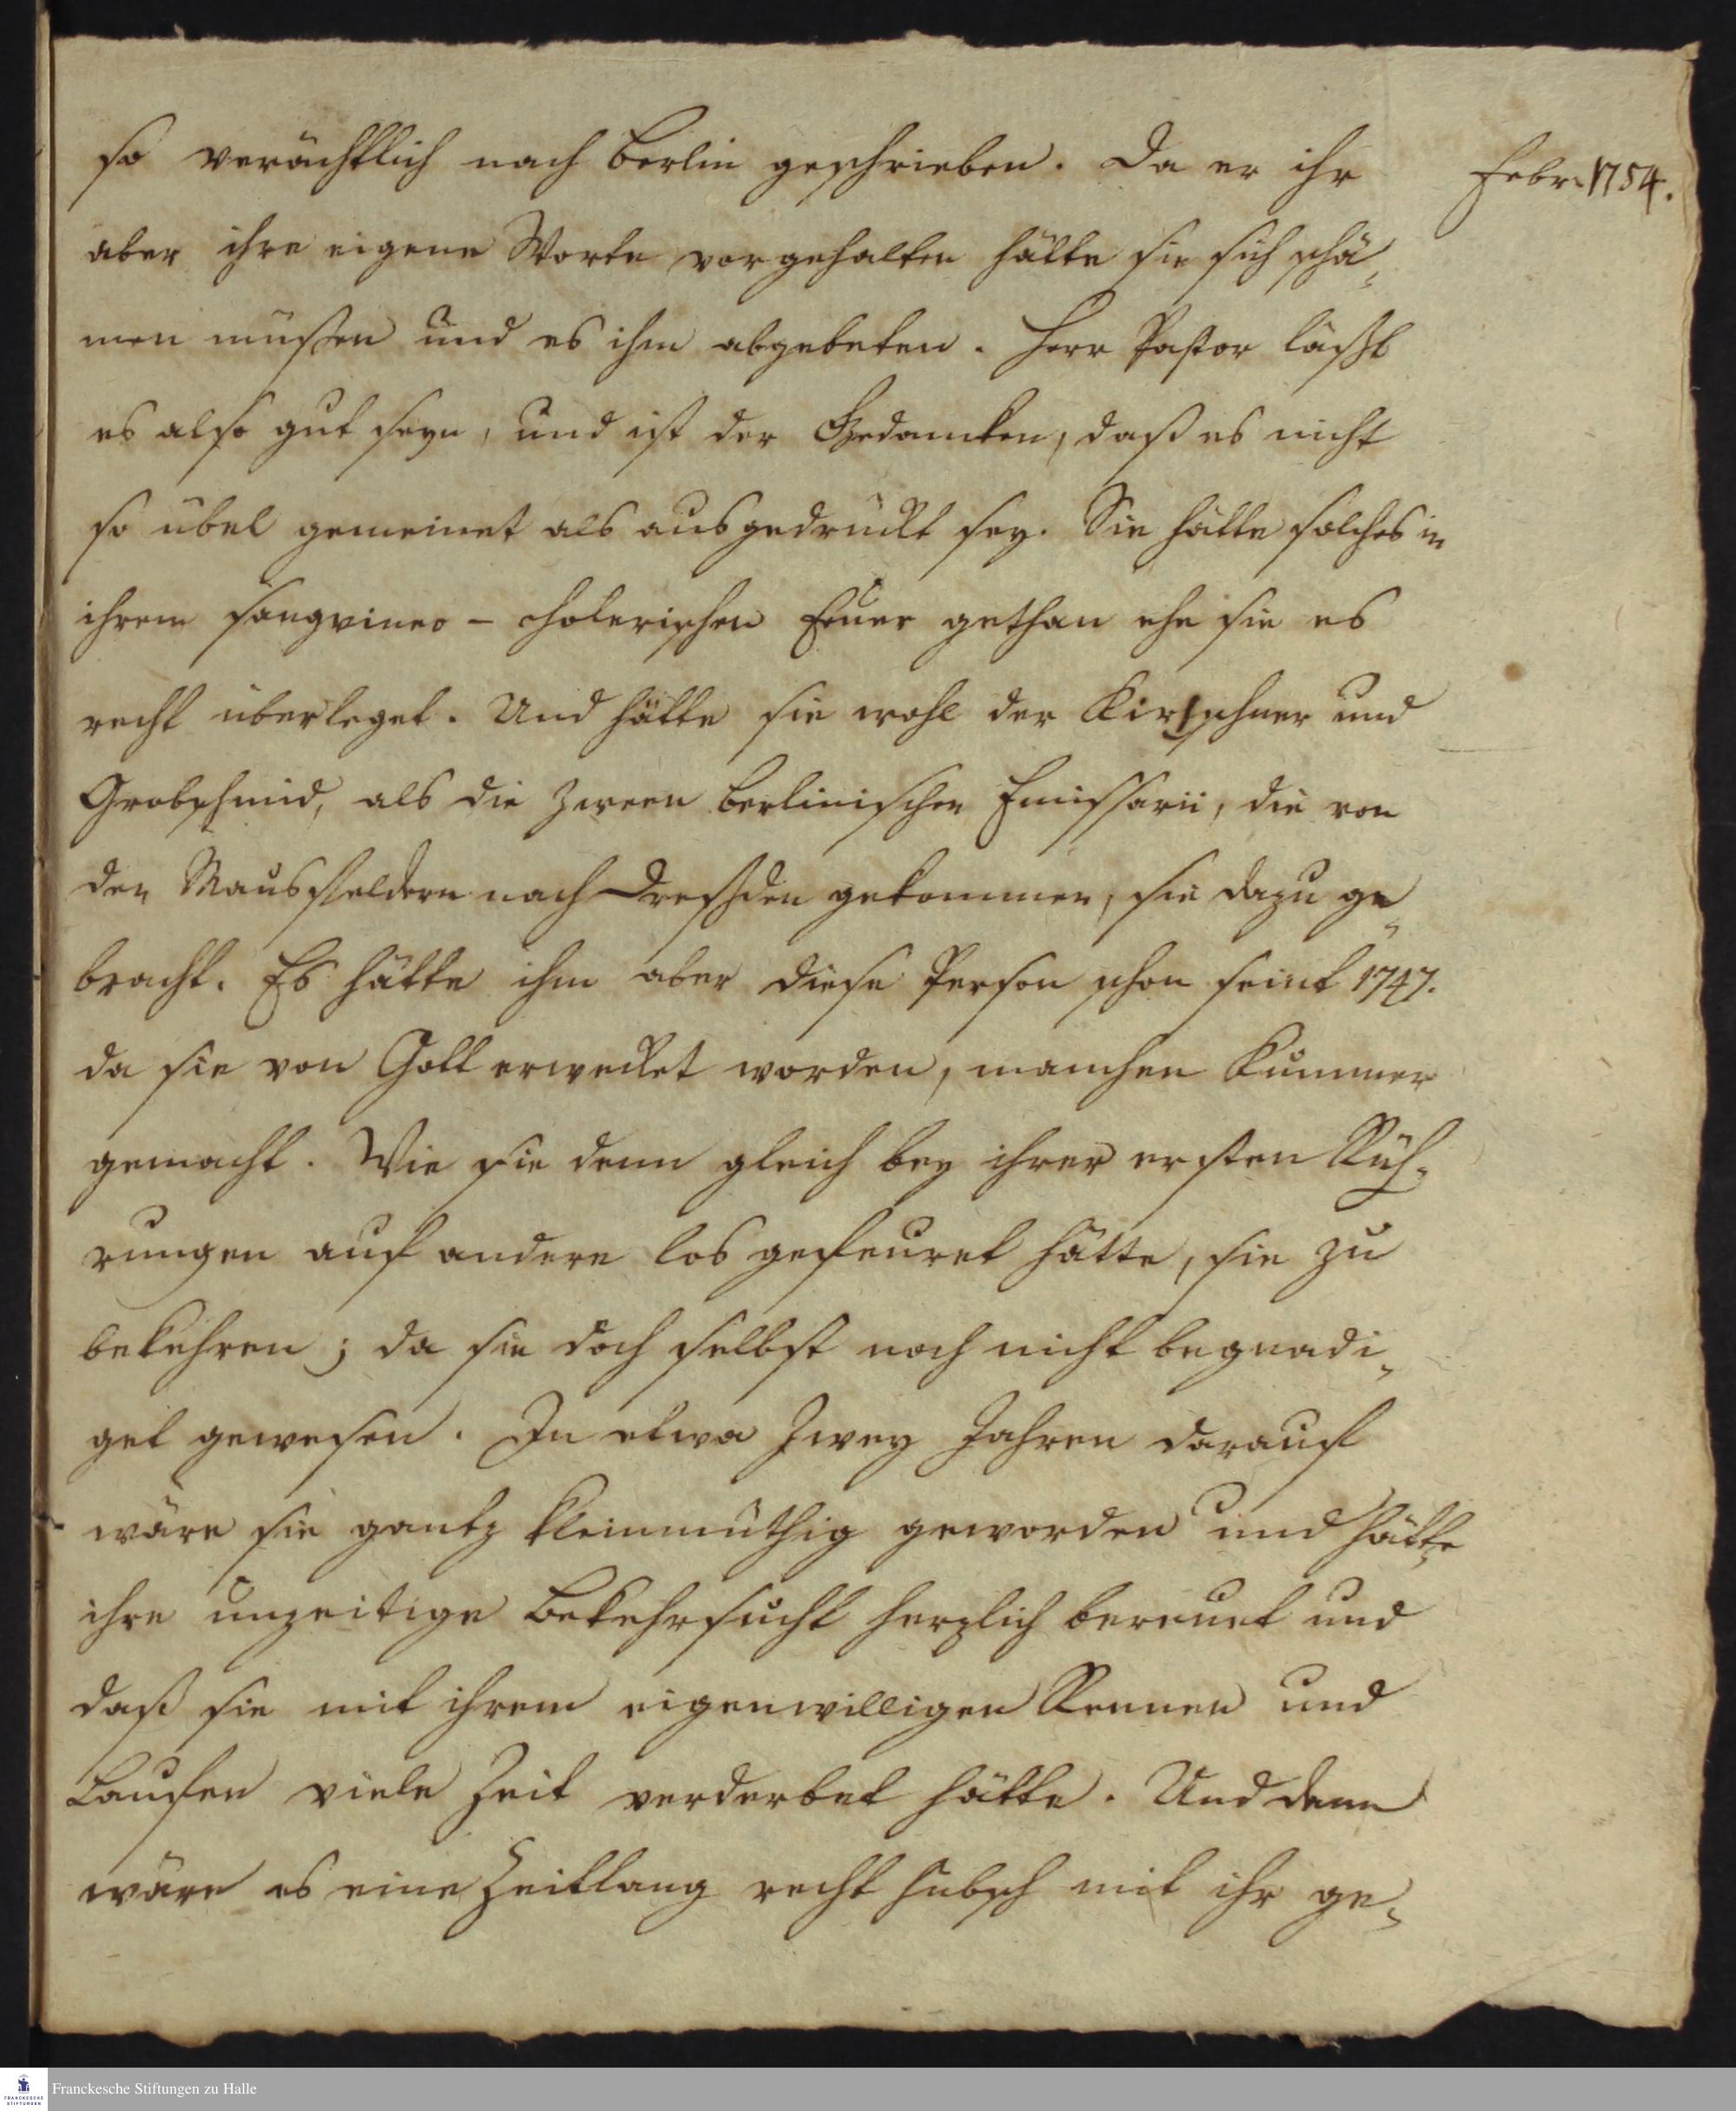 so verächtlich nach Berlin geschrieben. Da er ihr
Febr. 1754.
aber ihre eigene Worte vorgehalten hätte sie sich schä-
men müßen und es ihm abgebeten. Herr Pastor läßt
es also gut seyn, und ist der Gedancken, daß es nicht
so übel gemeinet als ausgedruckt sey. Sie hätte solches in
ihrem sangvineo-cholerischen Feuer gethan ehe sie es
recht überleget. Und hätte sie wohl der Kirschner und
Grobschmid, als die zween Berlinischen Emissarii, die von
den Mansfeldern nach Dreßden gekommen, sie dazu ge-
bracht. Es hätte ihm aber diese Person schon seint 1747.
da sie von Gott erwecket worden, manchen Kummer
gemacht. Wie sie denn gleich bey ihrer ersten Rüh-
rungen auf andere los gefeuret hätte, sie zu
bekehren; da sie doch selbst noch nicht begnadi-
get gewesen. In etwa zwey Jahren darauf
wäre sie gantz kleinmüthig geworden und hätte
ihre unzeitige Bekehrsucht herzlich bereuet und
daß sie mit ihrem eigenwilligen Rennen und
Laufen viele Zeit verderbet hätte. Und denn
wäre es eine Zeitlang recht hübsch mit ihr ge-
Franckesche Stiftungen zu Halle